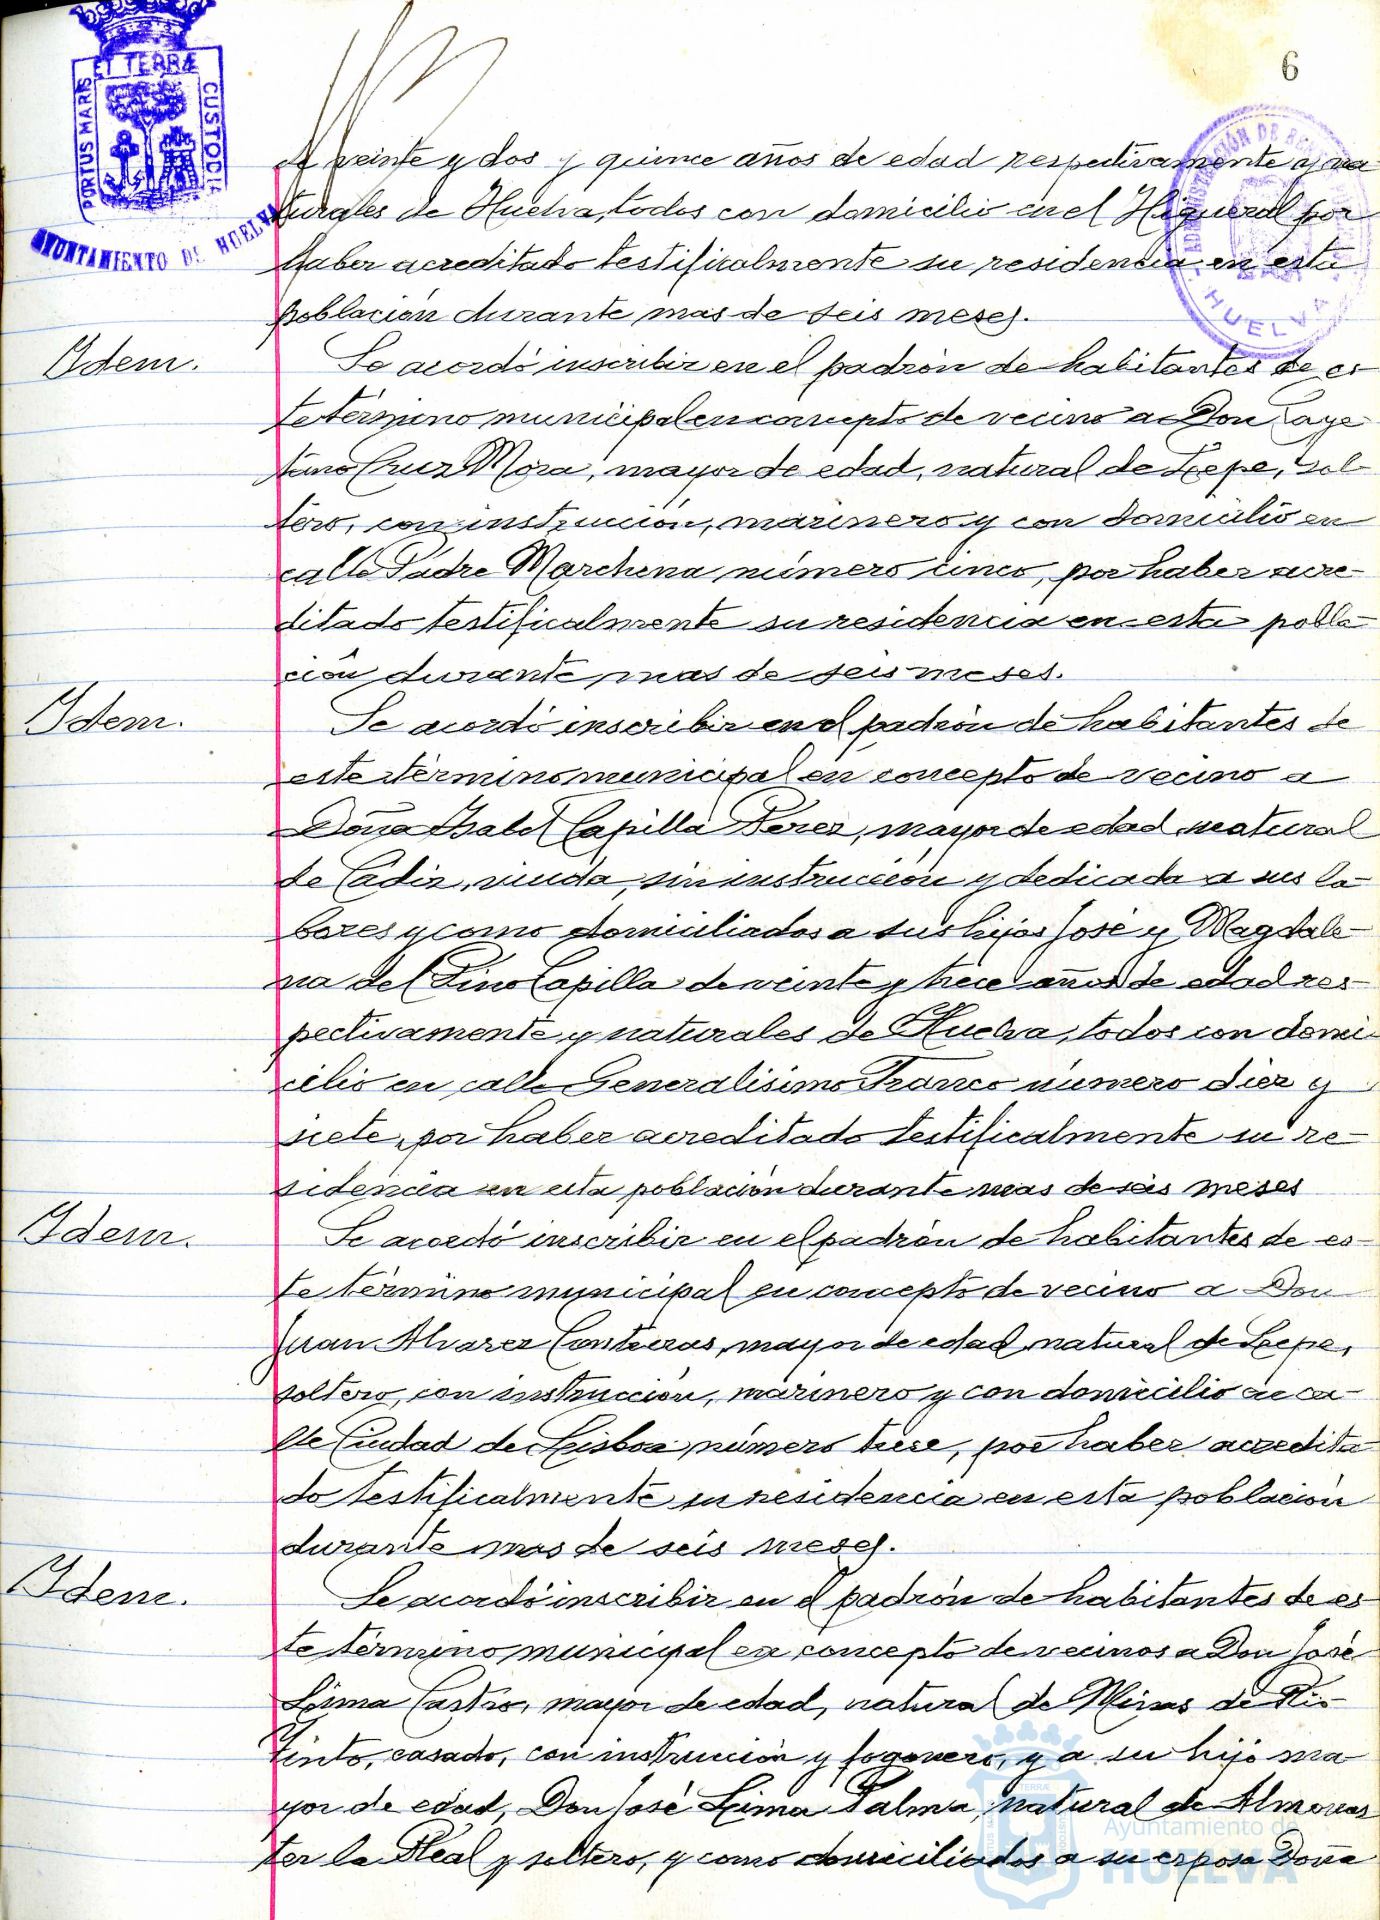 6
PORTUS MARIS ET TERRÆ CUSTODIA
AYUNTAMIENTO DE HUELVA
ADMINISTRACIÓN DE
HUELVA
de veinte y dos y quince años de edad respectivamente y na-
turales de Huelva, todos con domicilio en el Higueral por
haber acreditado testificalmente su residencia en esta
población durante mas de seis meses.
Idem.
Se acordó inscribir en el padrón de habitantes de es-
te término municipal en concepto de vecino a Don Caye
tano Cruz Mora, mayor de edad, natural de Lepe, sol-
tero, con instrucción, marinero y con domicilio en
calle Padre Marchena número cinco, por haber acre-
ditado testificalmente su residencia en esta pobla-
ción durante mas de seis meses.
Idem.
Se acordó inscribir en el padrón de habitantes de
este término municipal en concepto de vecino a
Doña Isabel Capilla Perez, mayor de edad, natural
de Cádiz, viuda, sin instrucción y dedicada a sus la-
bores y como domiciliados a sus hijos José y Magdale-
na del Pino Capilla de veinte y trece años de edad res-
pectivamente y naturales de Huelva, todos con domi-
cilio en calle Generalisimo Franco número diez y
siete, por haber acreditado testificalmente su re-
sidencia en esta población durante mas de seis meses
Idem.
Se acordó inscribir en el padrón de habitantes de es-
te término municipal en concepto de vecino a Don
Juan Alvarez Contreras, mayor de edad, natural de Lepe,
soltero, con instrucción, marinero y con domicilio en ca-
lle Ciudad de Lisboa número trese, por haber acredita-
do testificalmente su residencia en esta población
durante mas de seis meses.
Idem.
Se acordó inscribir en el padrón de habitantes de es-
te término municipal en concepto de vecinos a Don José
Lima Castro, mayor de edad, natural de Minas de Rio-
tinto, casado, con instrucción y fogonero, y a su hijo ma-
yor de edad, Don José Lima Palma, natural de Almonas
ter la Real y soltero, y como domiciliados a su esposa Doña
Ayuntamiento de
HUELVA